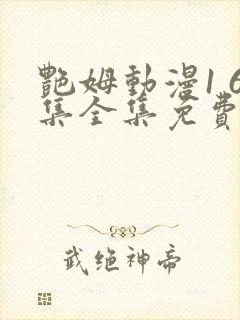 艷姆動漫1 6
集全集免費
武绝神帝